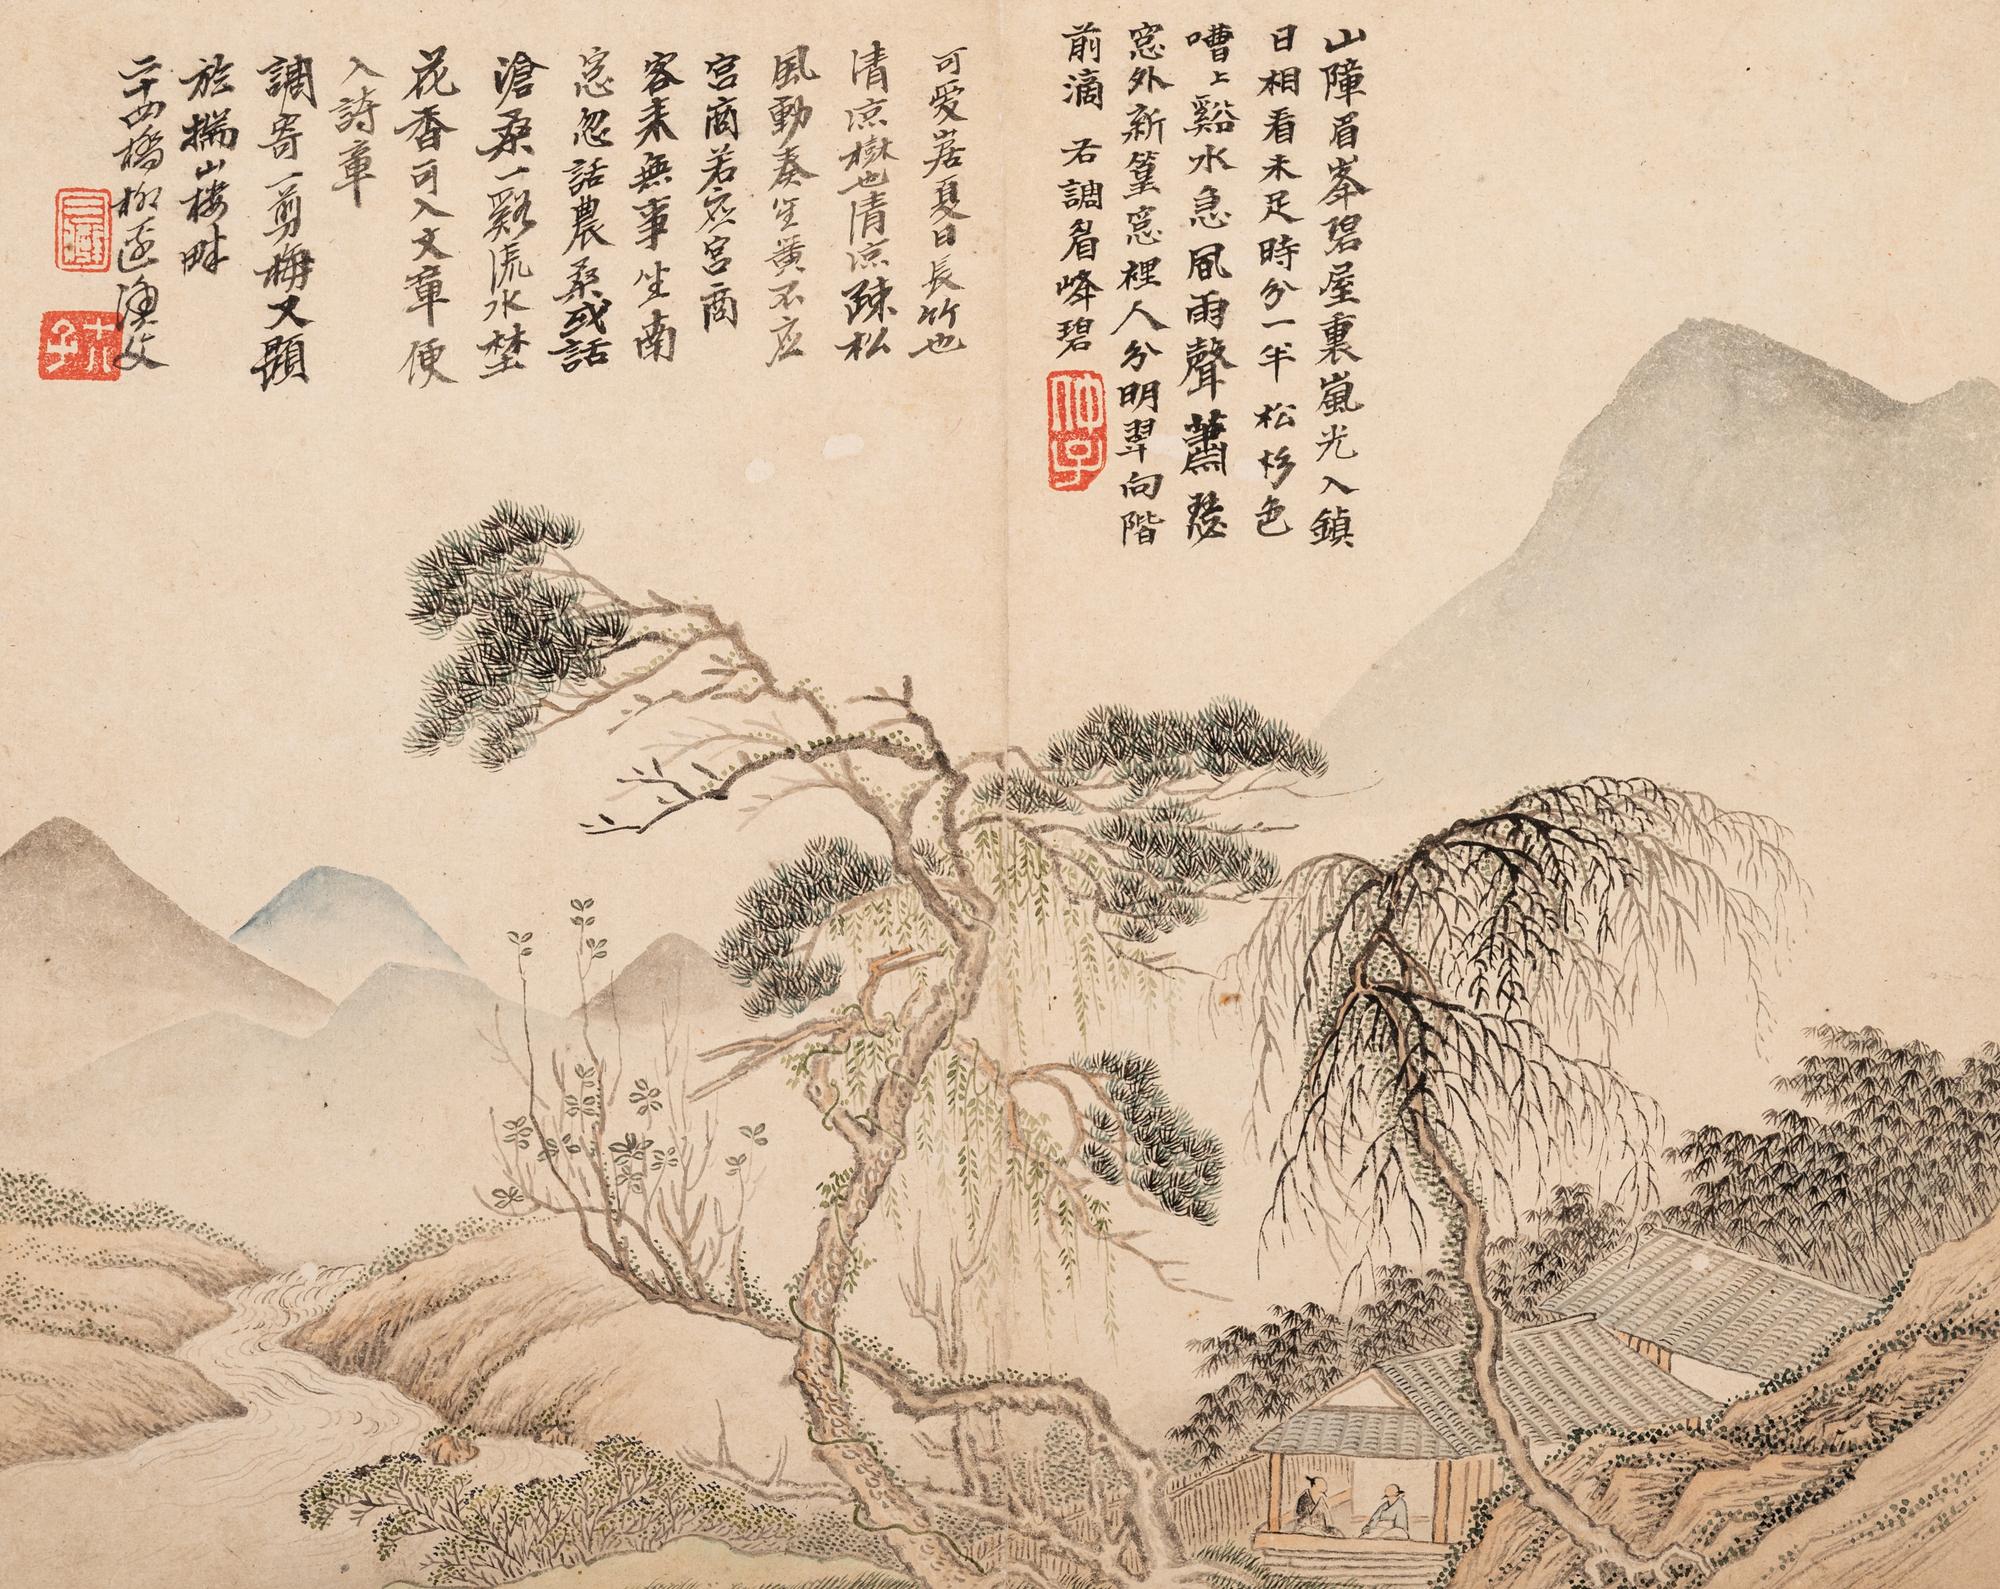 山障眉峯碧屋裏嵐光入鎮
日相看未足時分一半松杉色
嘈上谿水急風雨聲蕭瑟
窓外新篁窓裡人分明翠向階
前滴 右調眉峰碧
可愛崖夏日長竹也
清涼樹也清涼疎松
風動奏笙黄不应
宮商若应宮商
客來無事坐南
窓忽話農桑或話
滄桑一谿流水埜
花香可入文章便
入詩章
調寄一剪梅又題
於攜山樓畔
二十四橋柳逕漁父
仲子